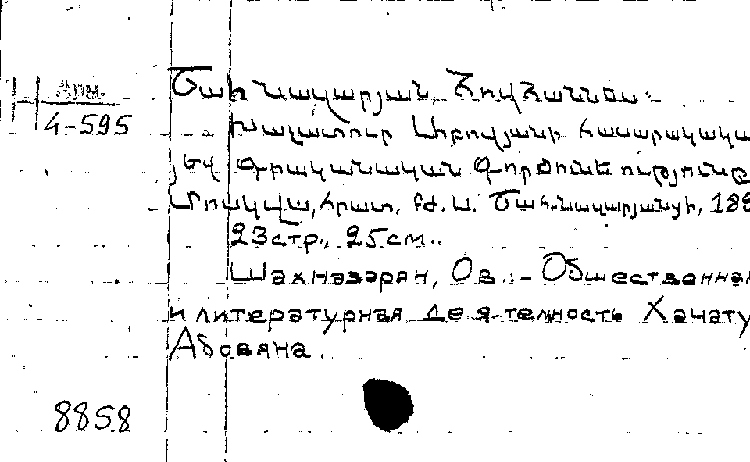 Շահնազարյան, Հովհաննես.
Н Арм. 4-595
Խաչատուր Աբովյանի հասարակակա
յեվ գրականական գործունեությունը
Մոսկվա, հրատ. բժ. Ա. Շահնազարյանցի, 189
23стр., 25см..
Шахназарян, Ов.. - Общественная
и литературная деятельность Хачату
Абовяна.
8858